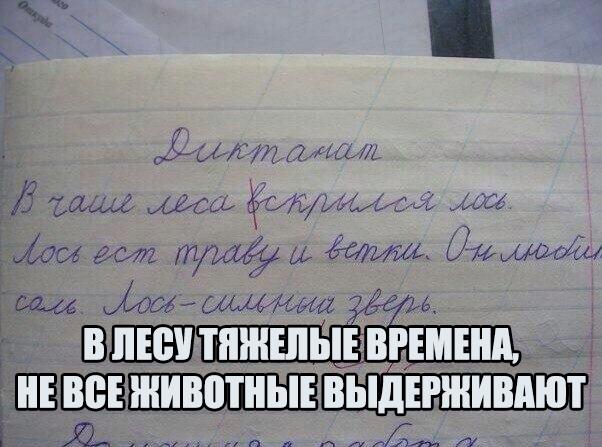 Откуда
Диктанат
В чаше леса вскрылся лось.
Лось ест траву и ветки. Он люби
соль. Лось-сильный зверь.
В ЛЕСУ ТЯЖЕЛЫЕ ВРЕМЕНА,
НЕ ВСЕ ЖИВОТНЫЕ ВЫДЕРЖИВАЮТ
Домашняя работа